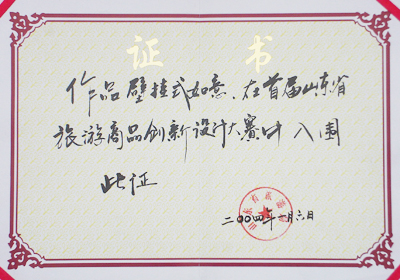 证 书
作品壁挂式如意，在首届山东省
旅游商品创新设计大赛中入围
此证
二〇〇四年 月六日